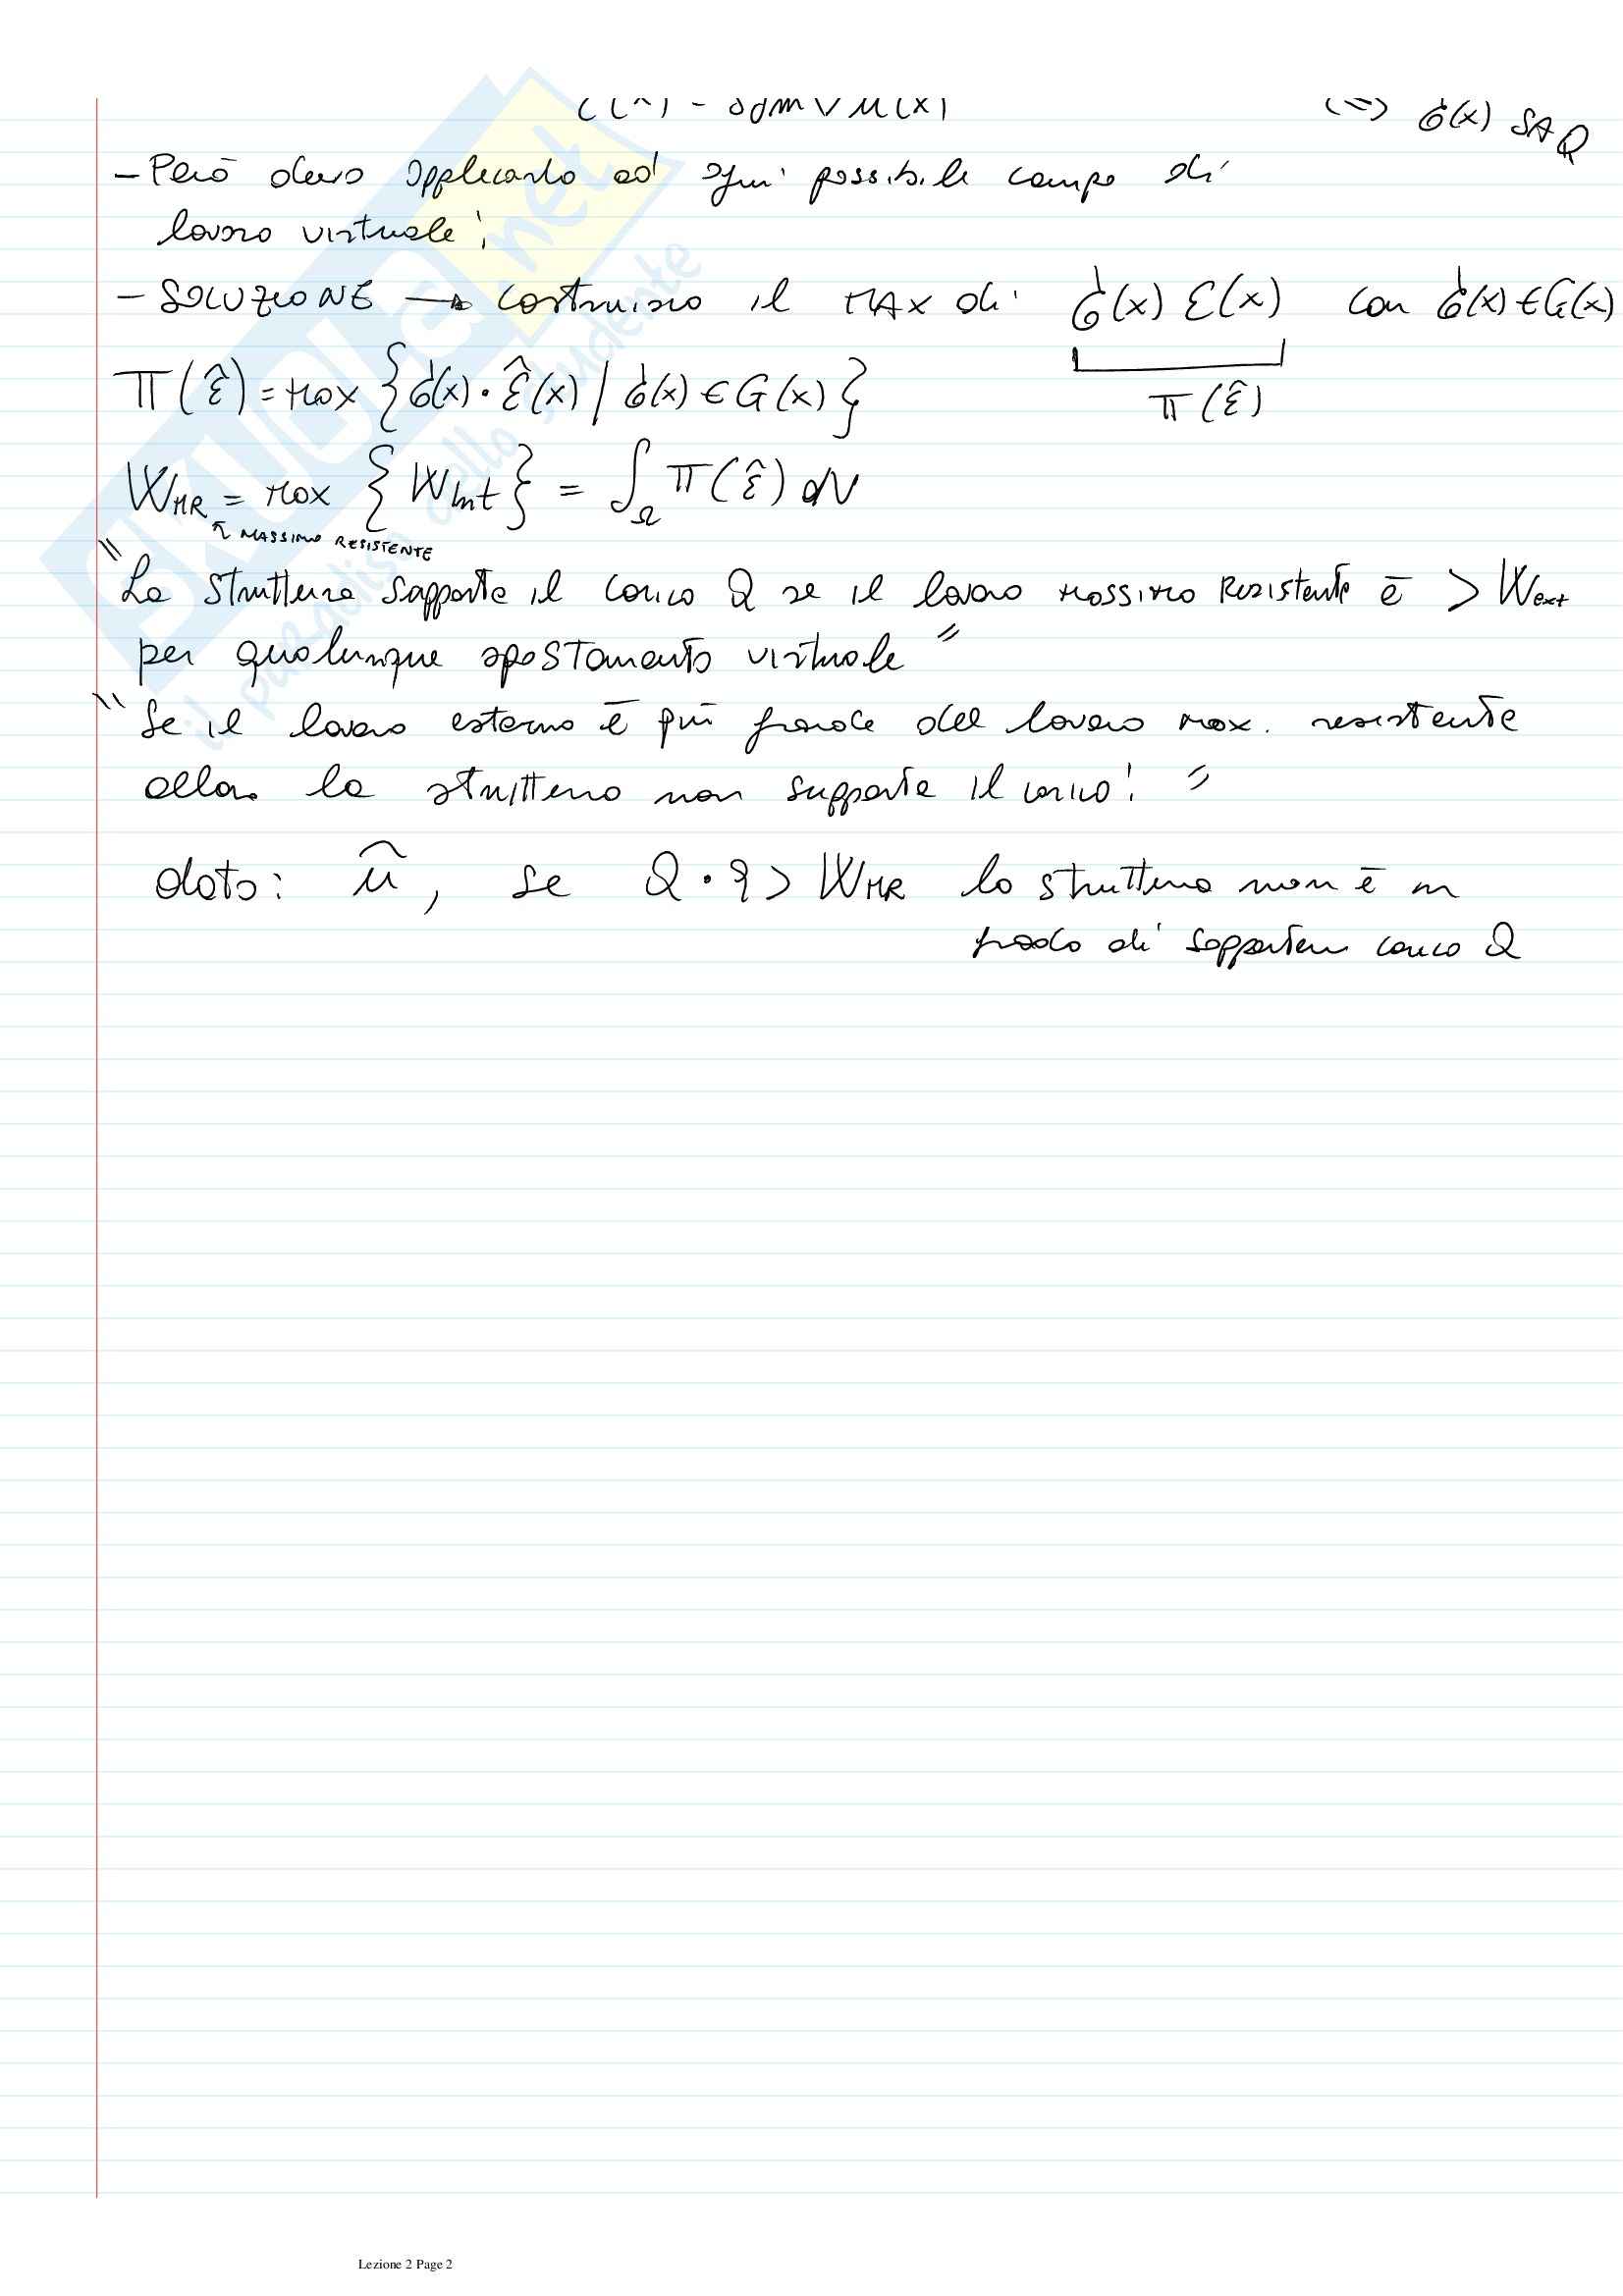 (=) σ(x) SA Q
- Però devo applicarlo ad ogni possibile campo di
lavoro virtuale!
- SOLUZIONE → costruisco il MAX di σ(x) ε(x) con σ(x) ∈ G(x)
π(ε̂) = max {σ(x) · ε̂(x) / σ(x) ∈ G(x)}
π(ε̂)
W_MR = max {W_int} = ∫_Ω π(ε̂) dV
↖ MASSIMO RESISTENTE
"La struttura sopporta il carico Q se il lavoro massimo Resistente è > W_ext
per qualunque spostamento virtuale"
"Se il lavoro esterno è più grande del lavoro max. resistente
allora la struttura non supporta il carico!"
dato: û, se Q · q > W_MR la struttura non è in
grado di sopportare carico Q
SKUOLA.net
il paradiso dello studente
Lezione 2 Page 2